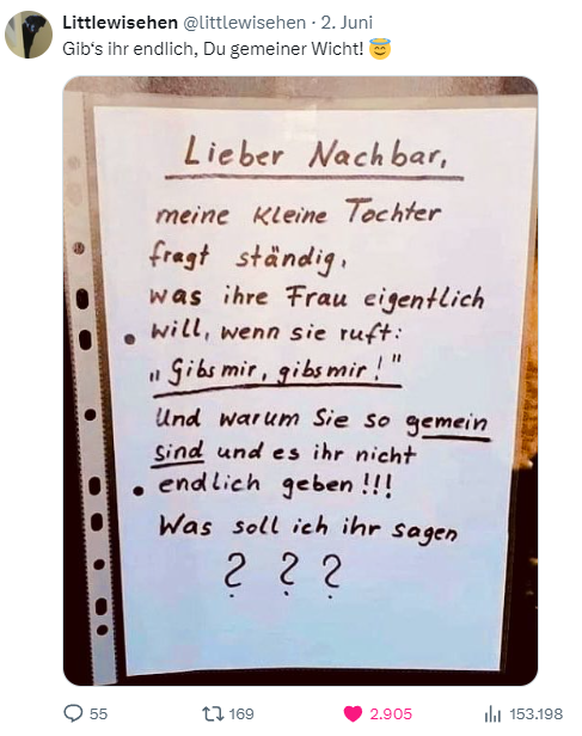 Littlewisehen @littlewisehen · 2. Juni
Gib‘s ihr endlich, Du gemeiner Wicht! 😇
Lieber Nachbar,
meine kleine Tochter
fragt ständig,
was ihre Frau eigentlich
will, wenn sie ruft:
„Gibs mir, gibs mir!"
Und warum Sie so gemein
sind und es ihr nicht
endlich geben!!!
Was soll ich ihr sagen
? ? ?
55 169 2.905 153.198